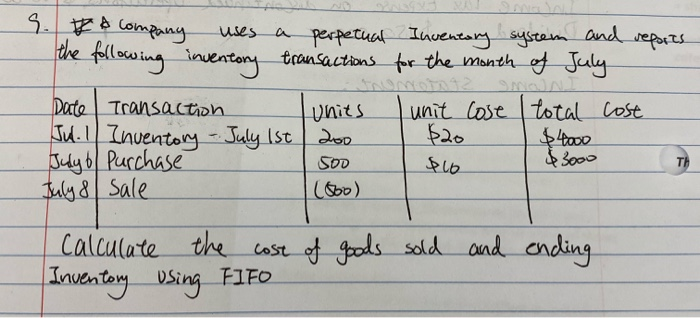 9. A company uses a perpetual Inventory system and reports
the following inventory transactions for the month of July
Date Transaction Units unit Cost total Cost
Jul. 1 Inventory - July 1st 200 $20 $4000
July 6 Purchase 500 $3000
July 8 Sale
Calculate the cost of goods sold and ending
Inventory Using FIFO